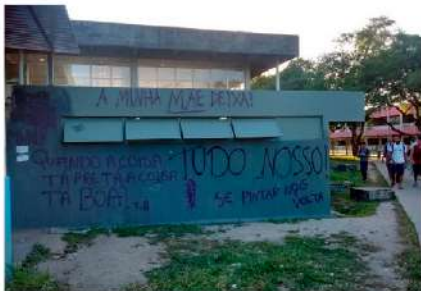 A MINHA MÃE DEIXA!
QUANDO A COISA
TÁ PRETA A COISA
TÁ BOA!
TUDO NOSSO!
SE PINTAR NOIS
VOLTA